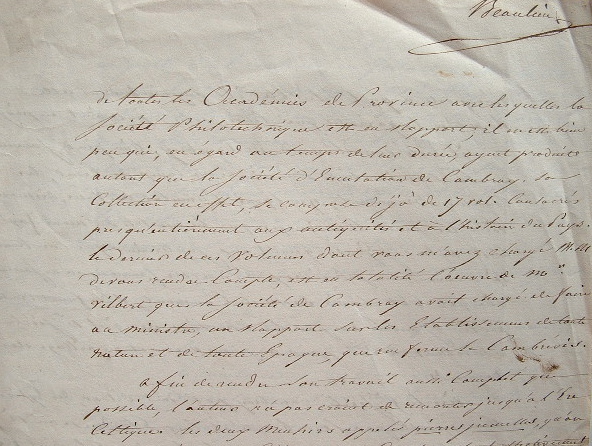 Beaulieu
de toutes les Académies de Province avec lesquelles la
Société Philotechnique est en rapport, il en est bien
peu qui, eu égard au temps de leur durée, ayent produit
autant que la Société d'Emulation de Cambray. Sa
Collection en effet, se compose déjà de 17 vol. consacrés
presqu'entièrement aux antiquités et à l'histoire du Pays.
le dernier de ces volumes dont vous m'avez chargé M.M.
de vous rendre Compte, est en totalité l'œuvre de Mr.
Wilbert que la Société de Cambray avait chargé de faire
au ministre, un rapport sur les Etablissemens de toute
nature et de toute Epoque, que renferme le Cambrésis.
afin de rendre son travail aussi Complet que
possible, l'auteur n'a pas craint de remonter jusqu'à l'Ere
Celtique. les deux Menhirs appelés pierres jumelles,